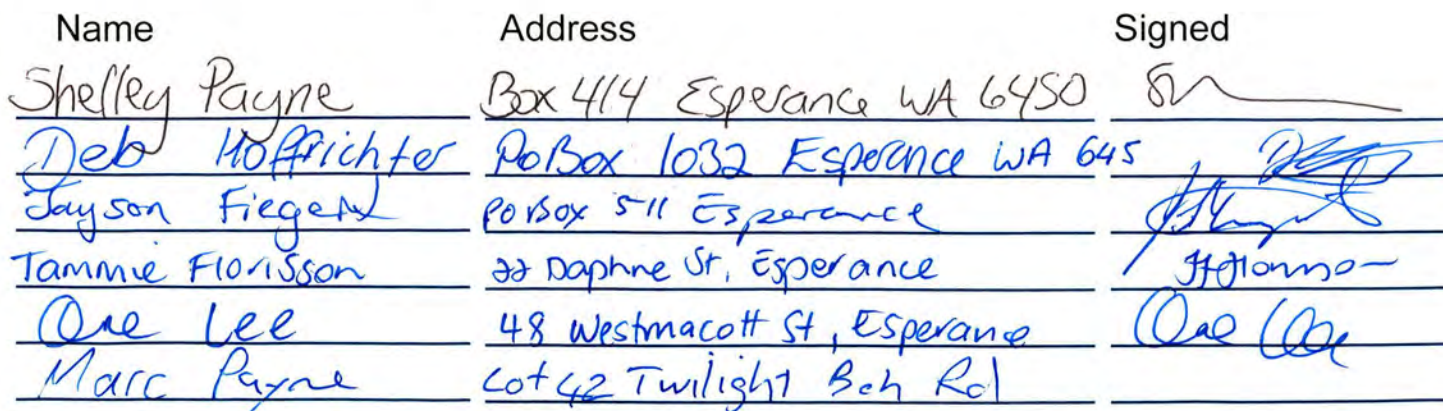 Name Address Signed
Shelley Payne Box 414 Esperance WA 6450
Deb Hoffrichter PoBox 1032 Esperance WA 645
Jayson Fiegert PO Box 511 Esperance
Tammie Florisson 22 Daphne St, Esperance
Lee 48 Westmacott St, Esperance
Marc Payne Lot 42 Twilight Bch Rd